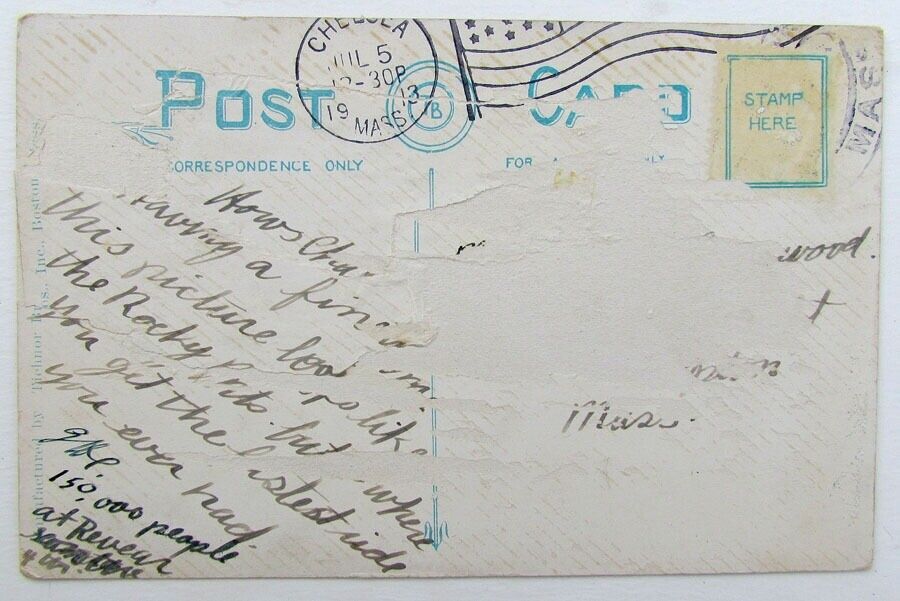 CHELSEA
JUL 5
12-30P
19 13
MASS
POST CARD
B
STAMP
HERE
MASS
CORRESPONDENCE ONLY
FOR A LY
Manufactured by Tichnor Bros., Inc., Boston
Hows
Having a fine
this picture looks like
the Rocky but where
you get the fastest ride
you ever had.
150,000 people
at Revear
wood.
Mass.